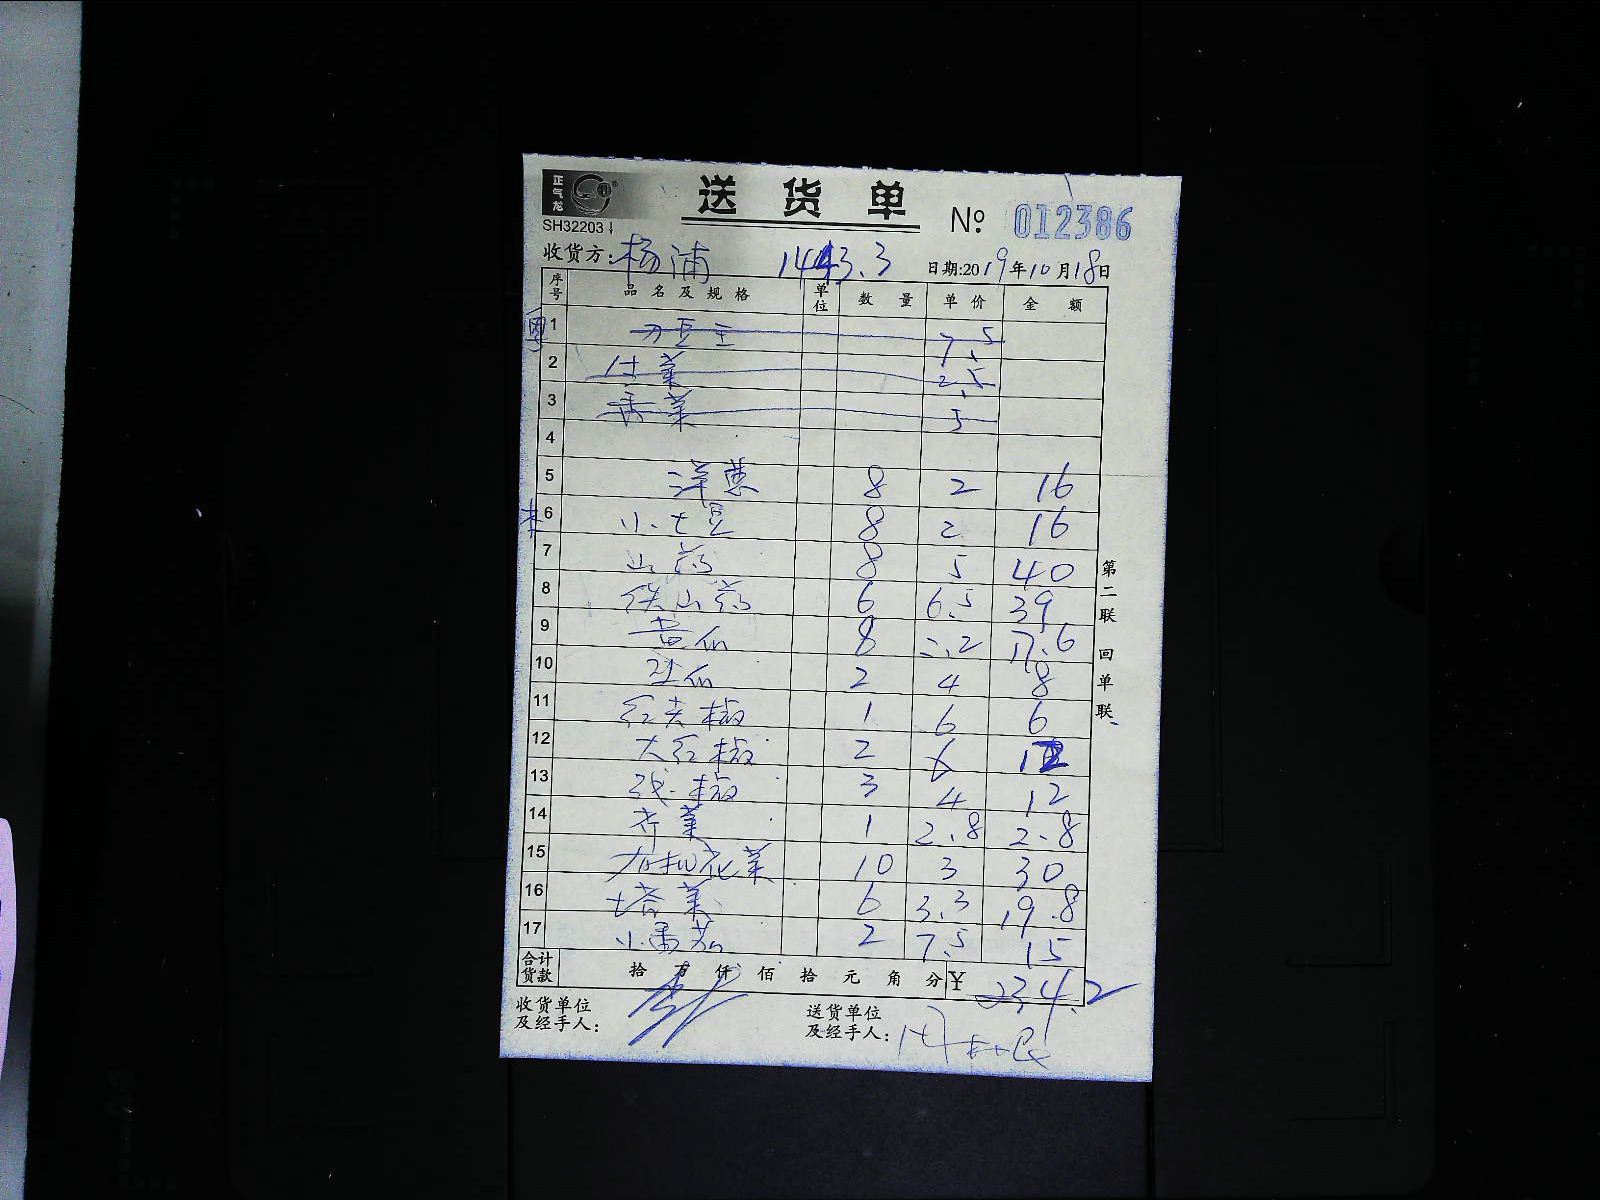 正气龙
送 货 单
SH32203
№: 012386
收货方: 杨浦 1443.3 日期:2019年10月18日
序号 品名及规格 单位 数量 单价 金额
1 刀豆王 7.5
2 什菜 2.5
3 香菜 5
4
5 洋葱 8 2 16
6 小土豆 8 2 16
7 山药 8 5 40
8 铁山药 6 6.5 39
9 黄瓜 8 2.2 17.6
10 2 4 8
11 红尖椒 1 6 6
12 大红椒 2 6 12
13 线椒 3 4 12
14 芹菜 1 2.8 2.8
15 有机花菜 10 3 30
16 塔菜 6 3.3 19.8
17 小番茄 2 7.5 15
合计货款 拾 万 仟 佰 拾 元 角 分 ¥ 234.2
收货单位及经手人:
送货单位及经手人:
第二联 回单联